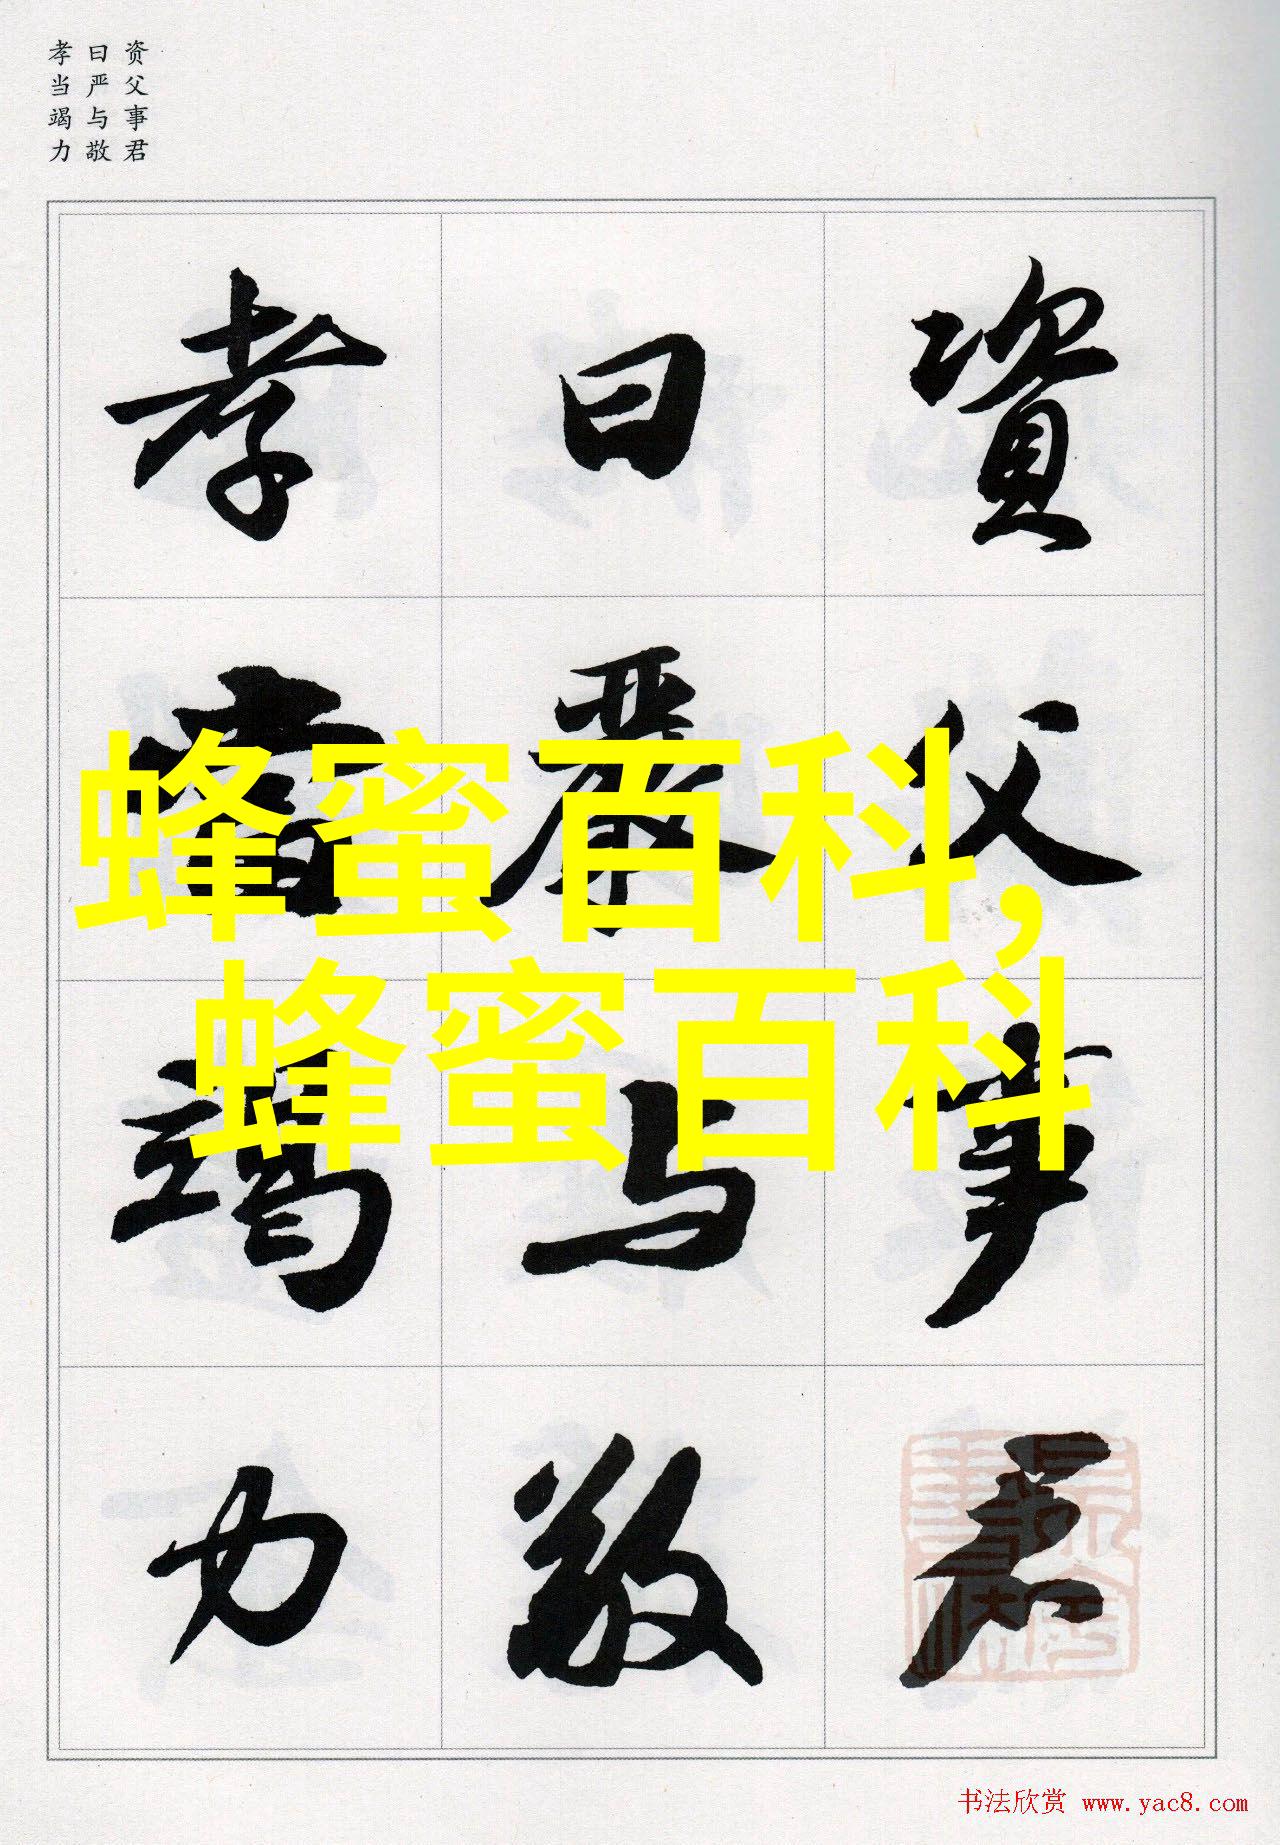 资父事君
曰严与敬
孝当竭力
資父事君
曰嚴与敬
孝當竭力
蜂蜜百科,
蜂蜜百科
书法欣赏 www.yac8.com